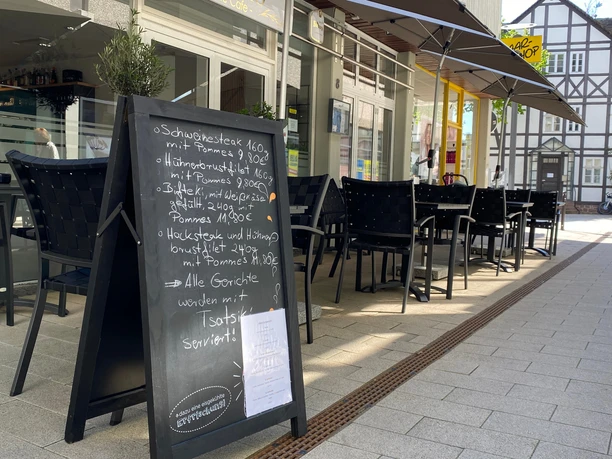 Cafe
BAR-
SHOP
○ Schweinesteak 160g
mit Pommes 9,80€
○ Hühnerbrustfilet 160g
mit Pommes 9,80€
○ Bifteki, mit Weißkäse
gefüllt, 240g mit
Pommes 11,90€
○ Hacksteak und Hühner
brustfilet 240g
mit Pommes 11,80€
⇒ Alle Gerichte
werden mit
Tsatsiki
serviert!
dazu eine eisgekühlte